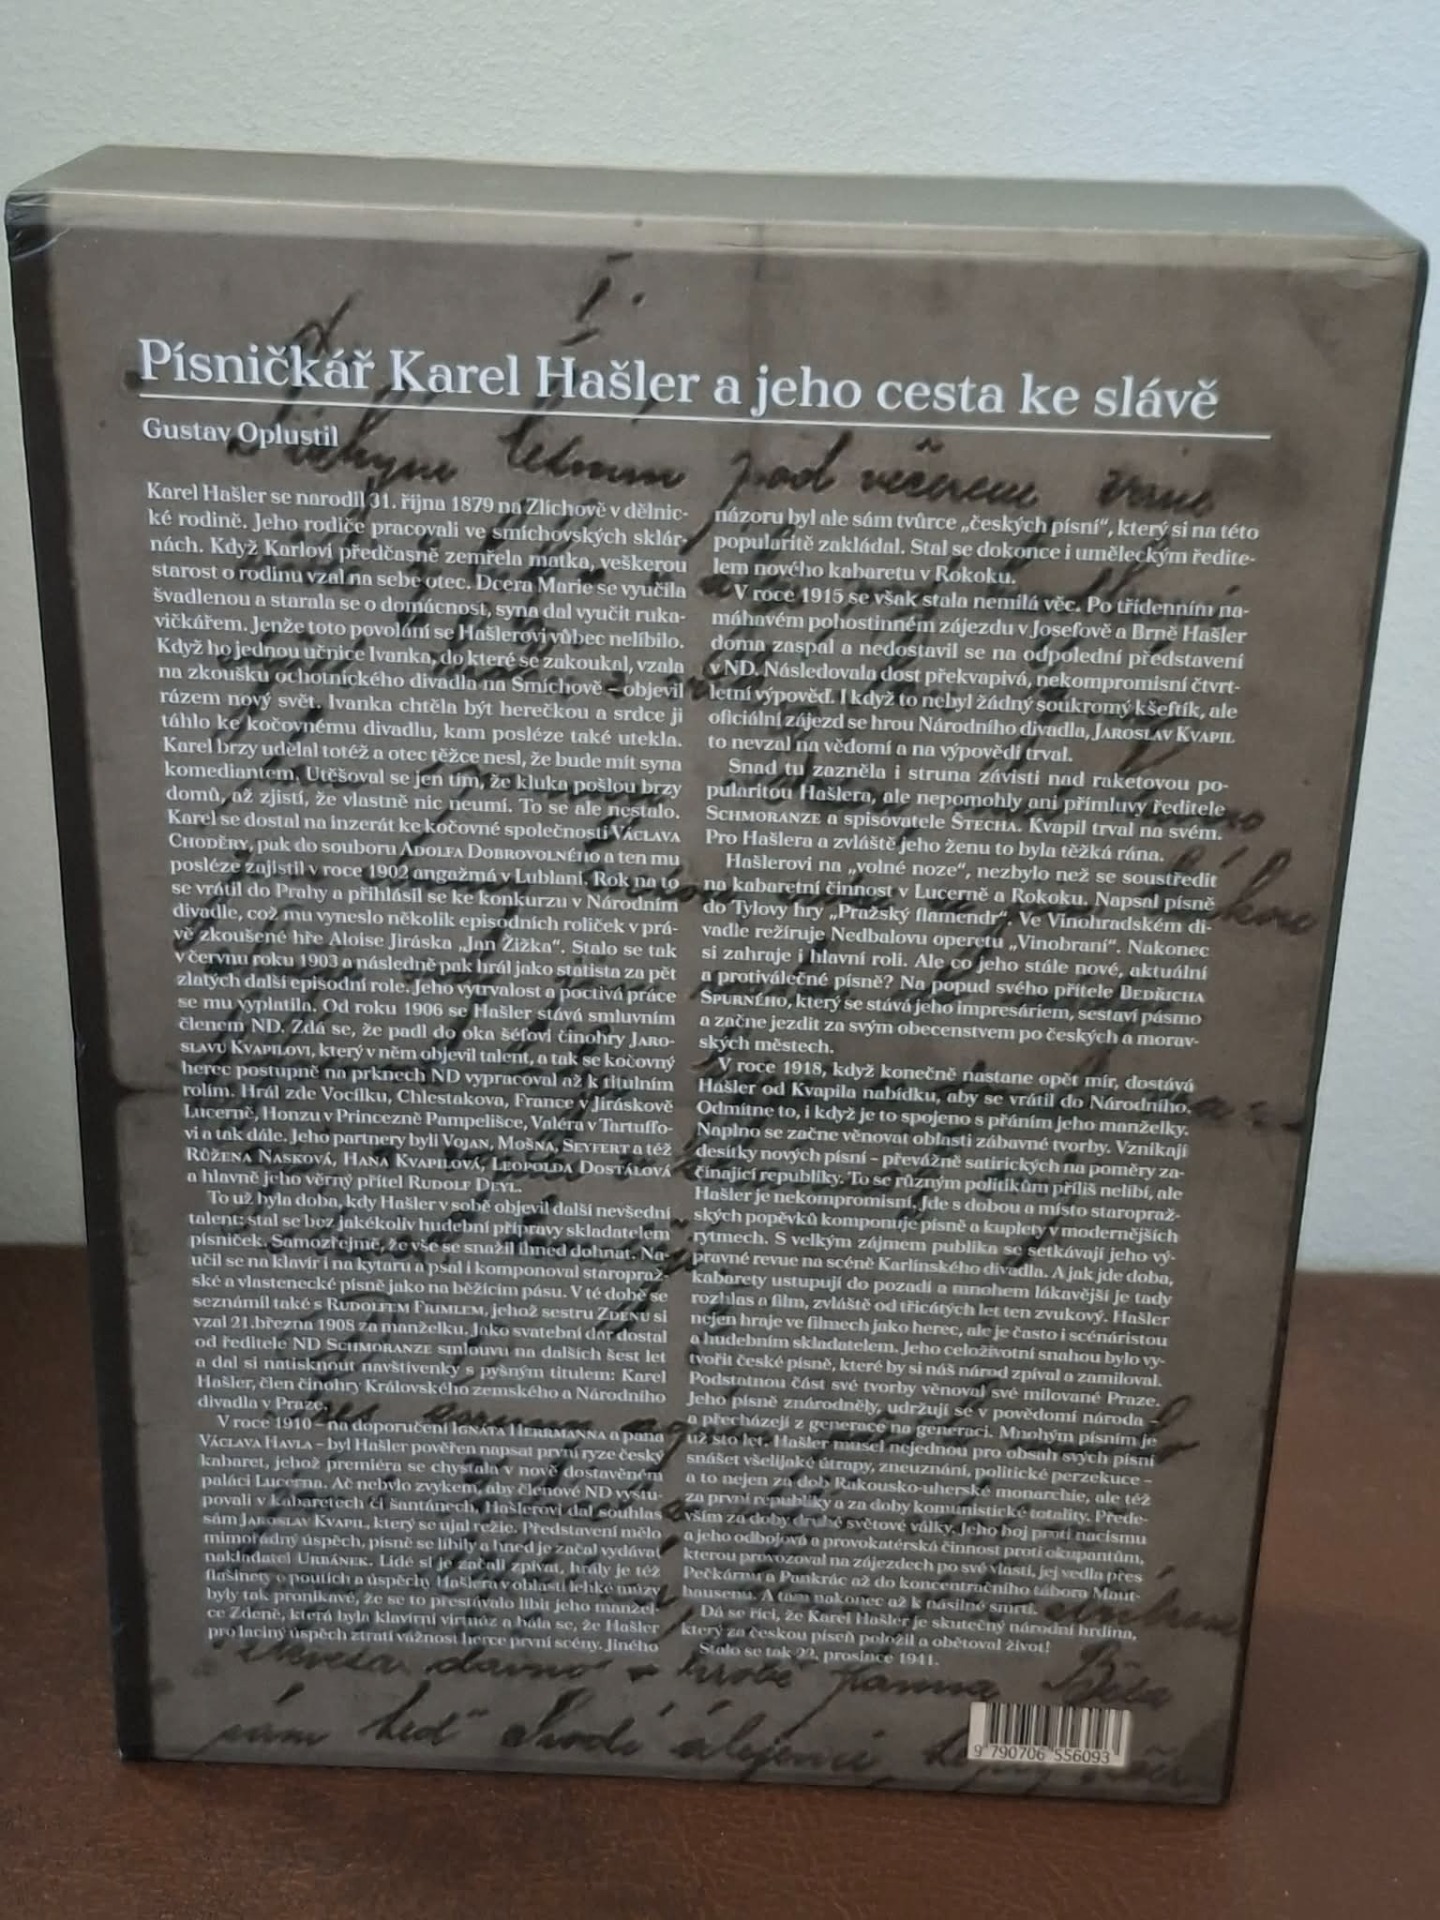 Písničkář Karel Hašler a jeho cesta ke slávě
Gustav Oplustil
Karel Hašler se narodil 31. října 1879 na Zlíchově v dělnic-
ké rodině. Jeho rodiče pracovali ve smíchovských sklár-
nách. Když Karlovi předčasně zemřela matka, veškerou
starost o rodinu vzal na sebe otec. Dcera Marie se vyučila
švadlenou a starala se o domácnost, syna dal vyučit ruka-
vičkářem. Jenže toto povolání se Hašlerovi vůbec nelíbilo.
Když ho jednou učnice Ivanka, do které se zakoukal, vzala
na zkoušku ochotnického divadla na Smíchově – objevil
rázem nový svět. Ivanka chtěla být herečkou a srdce ji
táhlo ke kočovnému divadlu, kam posléze také utekla.
Karel brzy udělal totéž a otec těžce nesl, že bude mít syna
komediantem. Utěšoval se jen tím, že kluka pošlou brzy
domů, až zjistí, že vlastně nic neumí. To se ale nestalo.
Karel se dostal na inzerát ke kočovné společnosti VÁCLAVA
CHODĚRY, pak do souboru ADOLFA DOBROVOLNÉHO a ten mu
posléze zajistil v roce 1902 angažmá v Lublani. Rok na to
se vrátil do Prahy a přihlásil se ke konkurzu v Národním
divadle, což mu vyneslo několik episodních roliček v prá-
vě zkoušené hře Aloise Jiráska „Jan Žižka“. Stalo se tak
v červnu roku 1903 a následně pak hrál jako statista za pět
zlatých další episodní role. Jeho vytrvalost a poctivá práce
se mu vyplatila. Od roku 1906 se Hašler stává smluvním
členem ND. Zdá se, že padl do oka šéfovi činohry JARO-
SLAVU KVAPILOVI, který v něm objevil talent, a tak se kočovný
herec postupně na prknech ND vypracoval až k titulním
rolím. Hrál zde Vocilku, Chlestakova, France v Jiráskově
Lucerně, Honzu v Princezně Pampelišce, Valéra v Tartuffo-
vi a tak dále. Jeho partnery byli VOJAN, MOŠNA, SEYFERT a též
RŮŽENA NASKOVÁ, HANA KVAPILOVÁ, LEOPOLDA DOSTALOVÁ
a hlavně jeho věrný přítel RUDOLF DEYL.
To už byla doba, kdy Hašler v sobě objevil další nevšední
talent: stal se bez jakékoliv hudební přípravy skladatelem
písniček. Samozřejmě, že vše se snažil ihned dohnat. Na-
učil se na klavír i na kytaru a psal i komponoval staropraž-
ské a vlastenecké písně jako na běžícím pásu. V té době se
seznámil také s RUDOLFEM FRIMLEM, jehož sestru ZDENU si
vzal 21.března 1908 za manželku. Jako svatební dar dostal
od ředitele ND SCHMORANZE smlouvu na dalších šest let
a dal si natisknout navštívenky s pyšným titulem: Karel
Hašler, člen činohry Královského zemského a Národního
divadla v Praze.
V roce 1910 – na doporučení IGNÁTA HERRMANNA a pana
VÁCLAVA HAVLA – byl Hašler pověřen napsat první ryze český
kabaret, jehož premiéra se chystala v nově dostavěném
paláci Lucerna. Ač nebylo zvykem, aby členové ND vystu-
povali v kabaretech či šantánech, Hašlerovi dal souhlas
sám JAROSLAV KVAPIL, který se ujal režie. Představení mělo
mimořádný úspěch, písně se líbily a hned je začal vydávat
nakladatel URBÁNEK. Lidé si je začali zpívat, hrály je též
flašinety o poutích a úspěchy Hašlera v oblasti lehké múzy
byly tak pronikavé, že se to přestávalo líbit jeho manžel-
ce Zdeně, která byla klavírní virtuóz a bála se, že Hašler
pro laciný úspěch ztratí vážnost herce první scény. Jiného
názoru byl ale sám tvůrce „českých písní“, který si na této
popularitě zakládal. Stal se dokonce i uměleckým ředite-
lem nového kabaretu v Rokoku.
V roce 1915 se však stala nemilá věc. Po třídenním na-
máhavém pohostinném zájezdu v Josefově a Brně Hašler
doma zaspal a nedostavil se na odpolední představení
v ND. Následovala dost překvapivá, nekompromisní čtvrt-
letní výpověď. I když to nebyl žádný soukromý kšeftík, ale
oficiální zájezd se hrou Národního divadla, JAROSLAV KVAPIL
to nevzal na vědomí a na výpovědi trval.
Snad tu zazněla i struna závisti nad raketovou po-
pularitou Hašlera, ale nepomohly ani přímluvy ředitele
SCHMORANZE a spisovatele ŠTECHA. Kvapil trval na svém.
Pro Hašlera a zvláště jeho ženu to byla těžká rána.
Hašlerovi na „volné noze“, nezbylo než se soustředit
na kabaretní činnost v Lucerně a Rokoku. Napsal písně
do Tylovy hry „Pražský flamendr“. Ve Vinohradském di-
vadle režíruje Nedbalovu operetu „Vinobraní“. Nakonec
si zahraje i hlavní roli. Ale co jeho stále nové, aktuální
a protiválečné písně? Na popud svého přítele BEDŘICHA
ŠPURNÉHO, který se stává jeho impresáriem, sestaví pásmo
a začne jezdit za svým obecenstvem po českých a morav-
ských městech.
V roce 1918, když konečně nastane opět mír, dostává
Hašler od Kvapila nabídku, aby se vrátil do Národního.
Odmítne to, i když je to spojeno s přáním jeho manželky.
Naplno se začne věnovat oblasti zábavné tvorby. Vznikají
desítky nových písní – převážně satirických na poměry za-
čínající republiky. To se různým politikům příliš nelíbí, ale
Hašler je nekompromisní. Jde s dobou a místo staropraž-
ských popěvků komponuje písně a kuplety v modernějších
rytmech. S velkým zájmem publika se setkávají jeho vý-
pravné revue na scéně Karlínského divadla. A jak jde doba,
kabarety ustupují do pozadí a mnohem lákavější je tady
rozhlas a film, zvláště od třicátých let ten zvukový. Hašler
nejen hraje ve filmech jako herec, ale je často i scénáristou
a hudebním skladatelem. Jeho celoživotní snahou bylo vy-
tvořit české písně, které by si náš národ zpíval a zamiloval.
Podstatnou část své tvorby věnoval své milované Praze.
Jeho písně znárodněly, udržují se v povědomí národa –
a přecházejí z generace na generaci. Mnohým písním je
už sto let. Hašler musel nejednou pro obsah svých písní
snášet všelijaké útrapy, zneuznání, politické perzekuce –
a to nejen za dob Rakousko-uherské monarchie, ale též
za první republiky a za doby komunistické totality. Přede-
vším za doby druhé světové války. Jeho boj proti nacismu
a jeho odbojová a provokatérská činnost proti okupantům,
kterou provozoval na zájezdech po své vlasti, jej vedla přes
Pečkárnu a Pankrác až do koncentračního tábora Maut-
hausenu. A tam nakonec až k násilné smrti.
Dá se říci, že Karel Hašler je skutečný národní hrdina,
který za českou píseň položil a obětoval život!
Stalo se tak 22. prosince 1941.
9 790706 556093